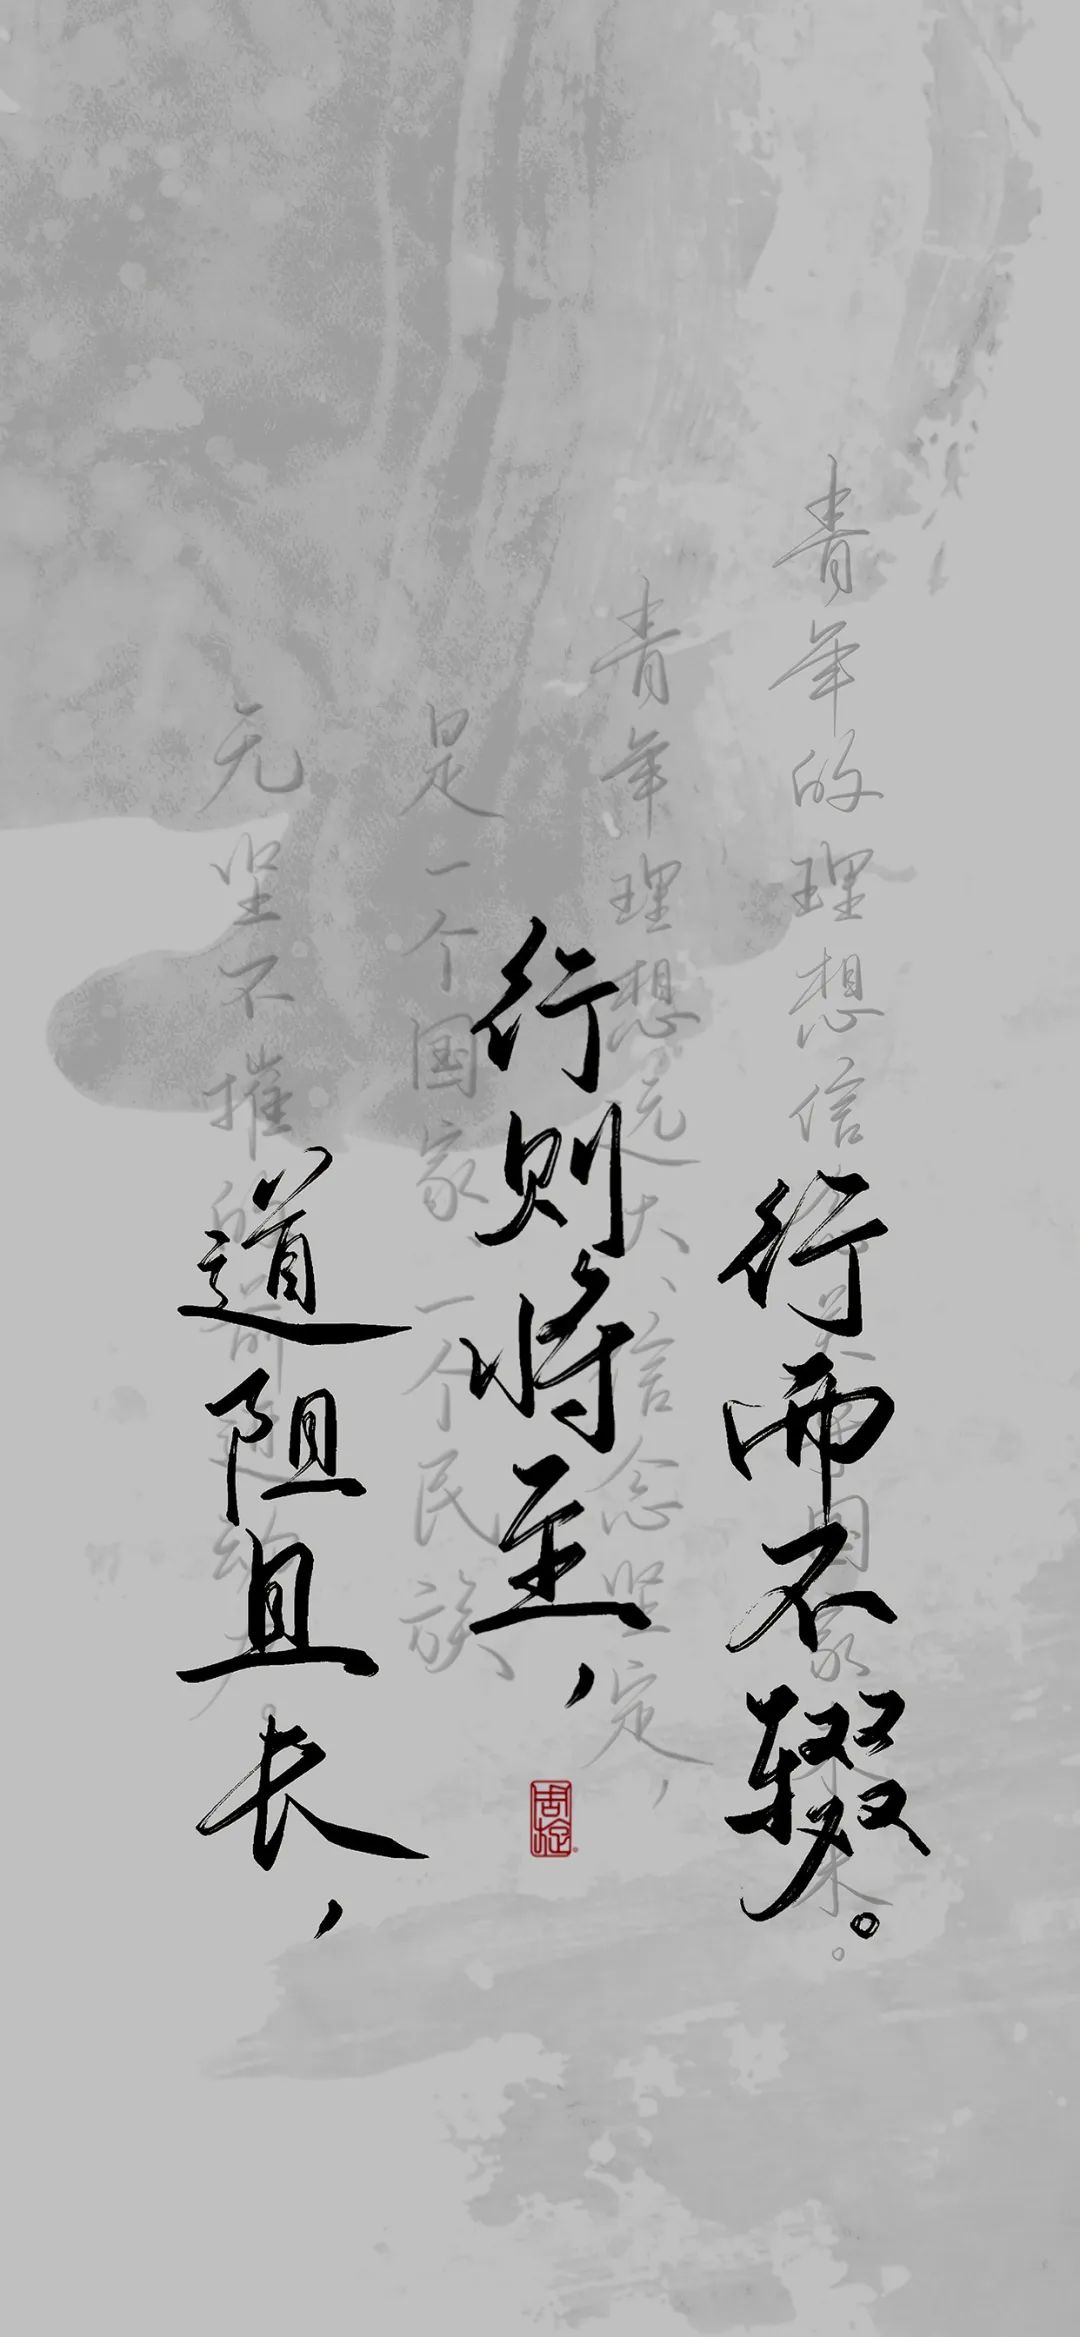 道阻且长，
行则将至，
行而不辍。
青年的理想信念关乎国家未来。
青年理想远大、信念坚定，
是一个国家、一个民族
无坚不摧的前进动力。